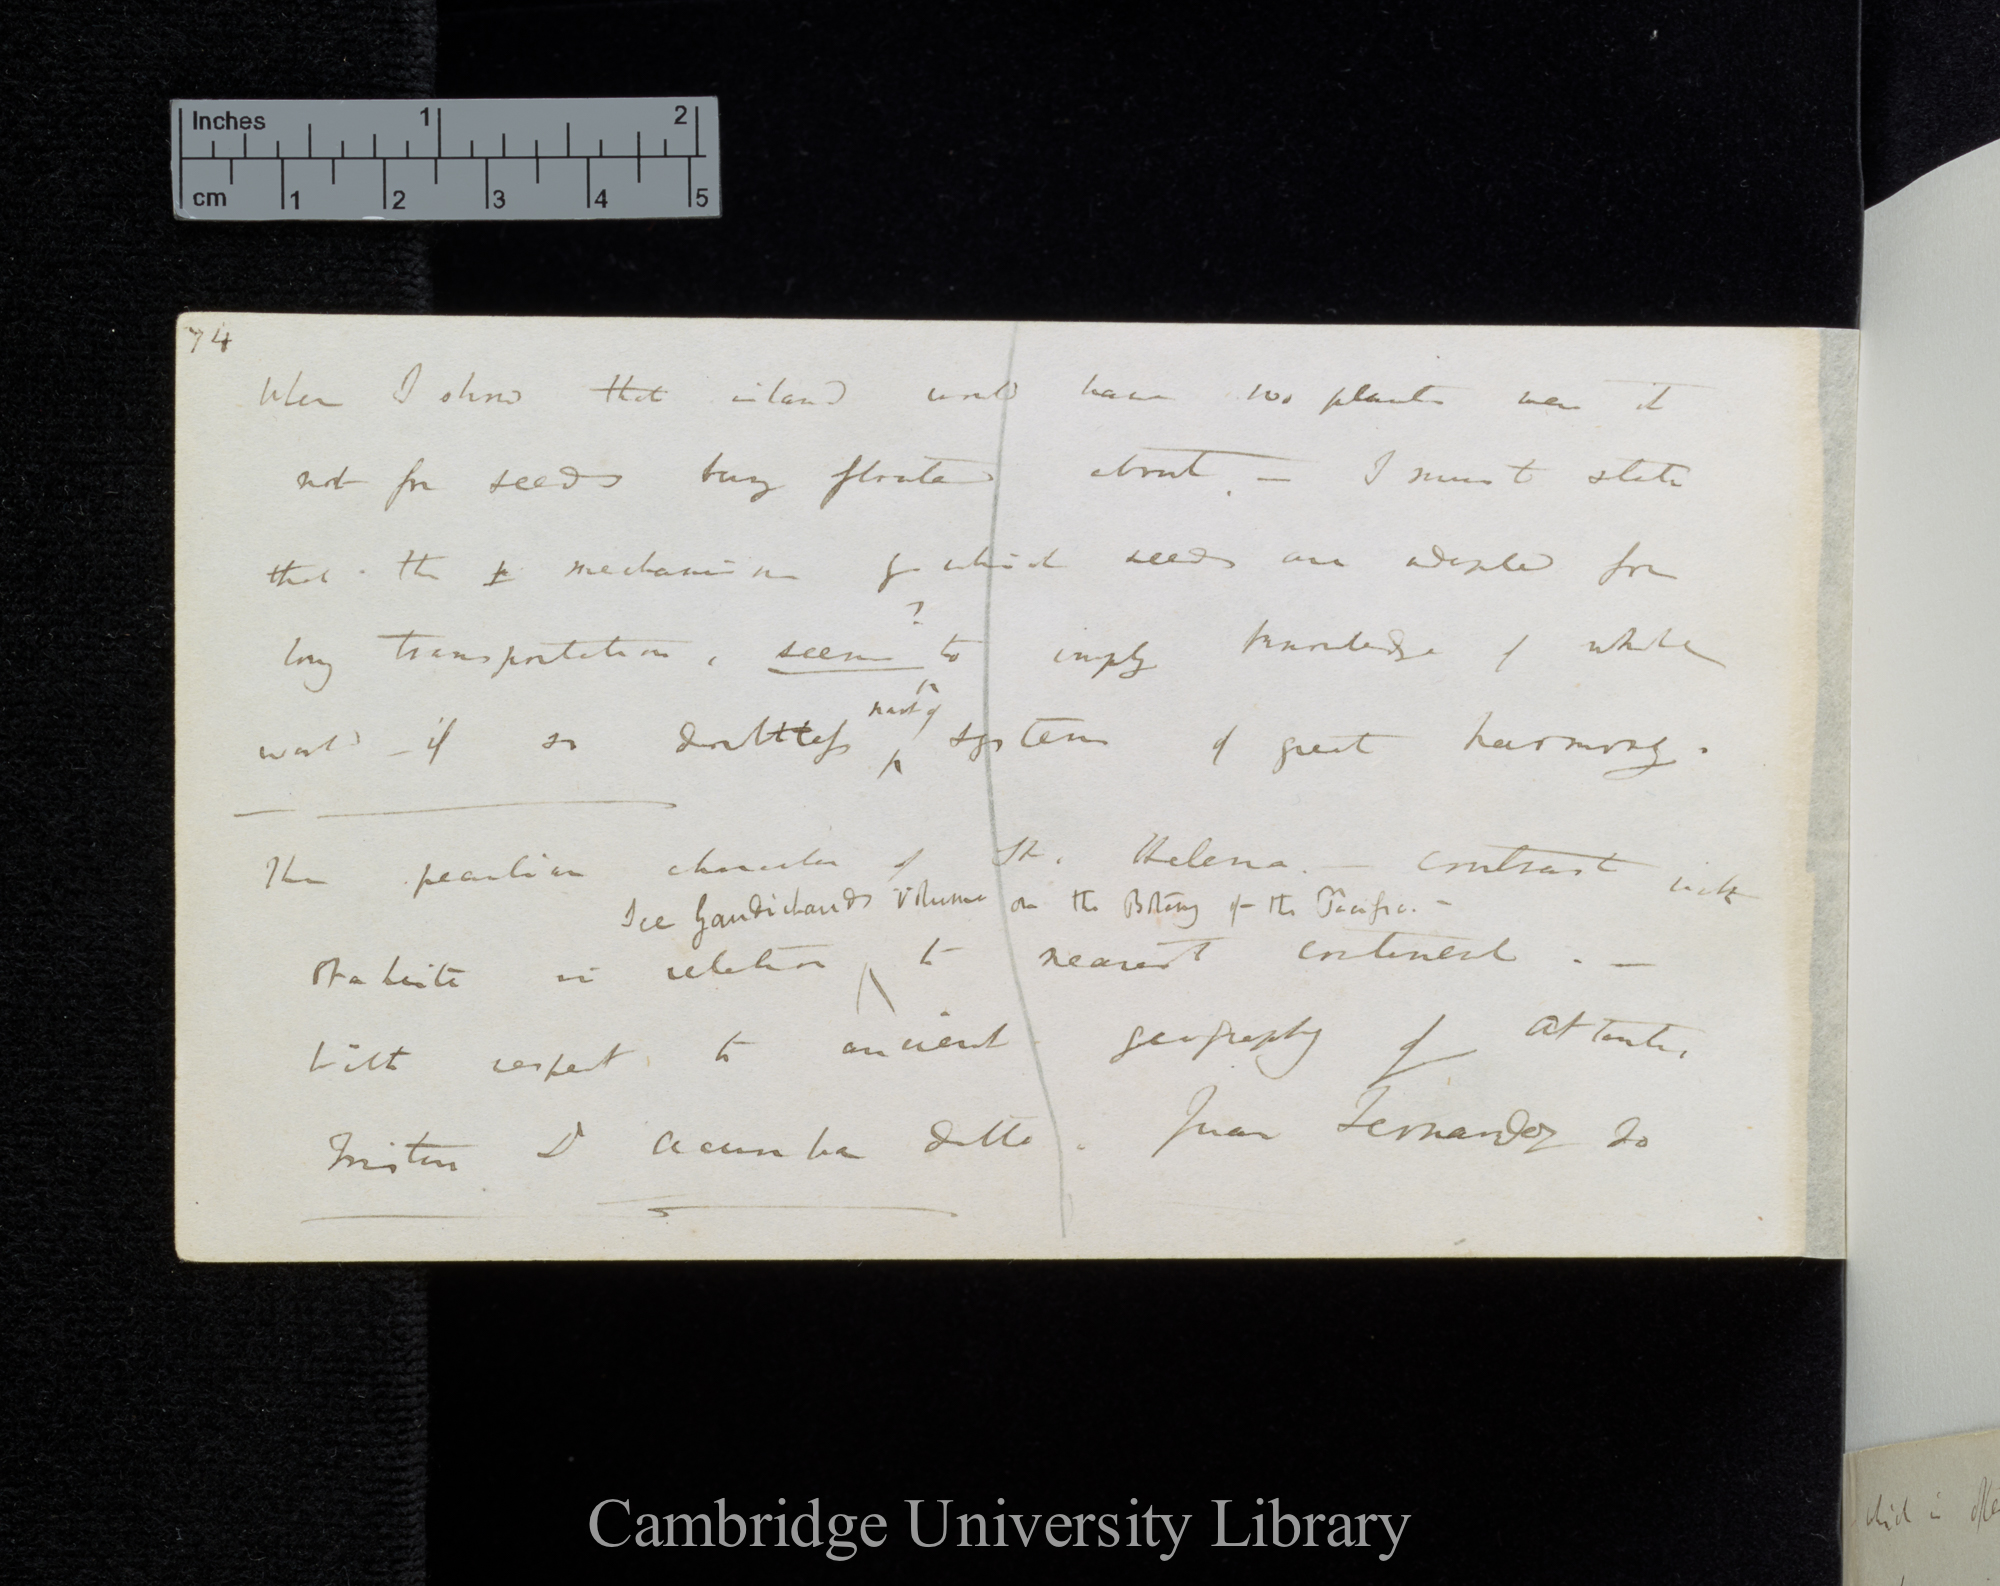 Inches 1 2
cm 1 2 3 4 5
74
When I show that island would have no plants were it
not for seeds being floated about. — I must state
that the mechanism by which seeds are adapted for
long transportation, seems ? to imply knowledge of whole
world — if so doubtless part of system of great harmony.
The peculiar character of St. Helena. — contrast with
See Gaudichauds Volume on the Botany of the Pacific. —
Otaheite in relation to nearest continent. —
With respect to ancient geography of Atlantic.
Tristan D Acunha ditto. Juan Fernandez do
which is
Cambridge University Library